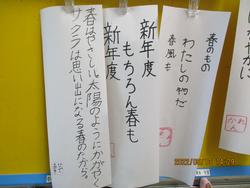 春のもの
わたしの物だ
春風も
新年度
もちろん春も
新年度
春はやさしい太陽のようにかがやく
サクラは思い出になる春のたから